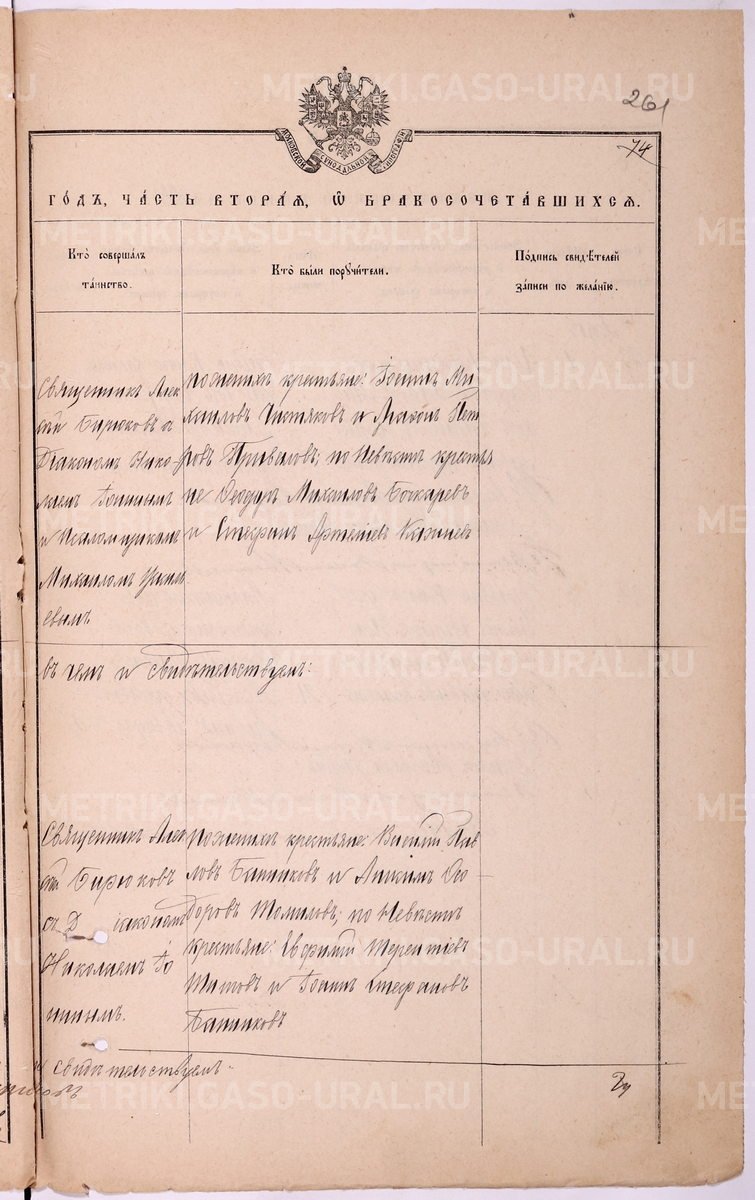 261
74
МОСКОВСКОЙ СѴНОДАЛЬНОЙ ТИПОГРАФІИ
ГО́ДЪ, ЧА́СТЬ ВТОРА́Ѧ, Ѡ҆ БРАКОСОЧЕТА́ВШИХСѦ.
Кто̀ соверша́лъ
та́инство.
Кто̀ бы́ли порꙋчи́тели.
По́дпись свидѣ́телей
за́писи по жела́нію.
Священникъ Алек
сѣй Бирюковъ съ
Діакономъ Нико-
лаемъ Іонинымъ
и Псаломщикомъ
Михаиломъ
евымъ
по женихѣ крестьяне: Іоаннъ Ми-
хаиловъ Чистяковъ и Іаковъ Пет
ровъ Приваловъ; по невѣстѣ крестья
не Ѳеодоръ Михаиловъ Бочкаревъ
и Стефанъ Артеміевъ
въ чемъ и свидѣтельствуемъ:
Священникъ Алек
сѣй Бирюковъ
съ Діакономъ
Николаемъ Іо
нинымъ.
по женихѣ крестьяне: Василій Пав
ловъ Банниковъ и Ѳео-
доровъ Томиловъ; по невѣстѣ
крестьяне: Евфимій Терентіевъ
Титовъ и Іоаннъ Стефановъ
Банниковъ
свидѣтельствуемъ.
METRIKI.GASO-URAL.RU